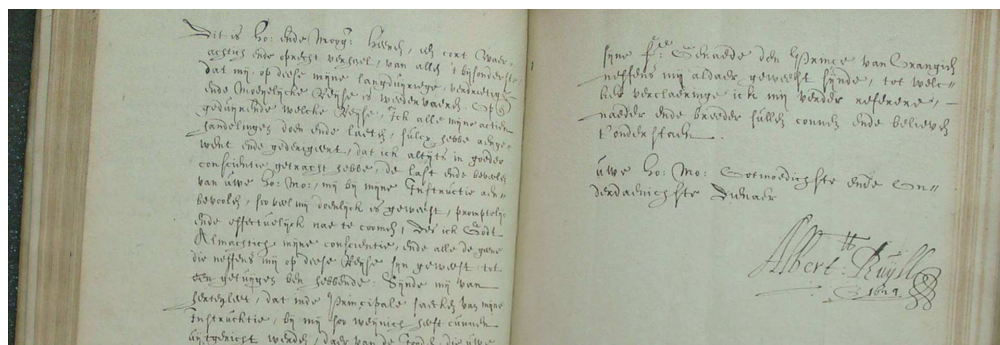 Dit is Ho: ende Mog: Heeren, een cort waer-
achtich ende oprecht verhael, van allen 't bijsonderste
dat mij op deese mijne langduijrige, verdrietige
ende moeijelijcke Reijse is wedervaeren. Op
geduijrende welcke Reijse, ick alle mijne actien
handelingen doen ende laeten, sulcx hebbe aenge-
went ende gedirigeert, dat ick altijts in goeder
conscientie getracht hebbe, de last ende bevelen
van uwe Ho: Mo: mij bij mijne Instructie aen-
bevolen, soo veel mij doenlijck is geweest, promptelijc
ende effectuelijck nae te coomen, Des ick Godt
Almachtich mijne conscientie, ende alle de gene
die neffens mij op deese Reijse sijn geweest tot
een getuijgen ben hebbende. Sijnde mij van
herten leet, dat inde Principale saecken van mijne
Instrucktie, bij mij soo weijnich heeft cunnen
uijtgericht werden, daer van de die uwe
sijne f. Genaede den Prince van Orangien
neffens mij aldaer, geweest sijnde, tot welc-
ker verclaeringe ick mij verder refereere,
naeder ende breeder sullen connen ende believen
t'onderstaen.
uwe Ho: Mo: Ootmoedichste ende On-
derdaenichste Dienaer
Albert Ruijll
1624.